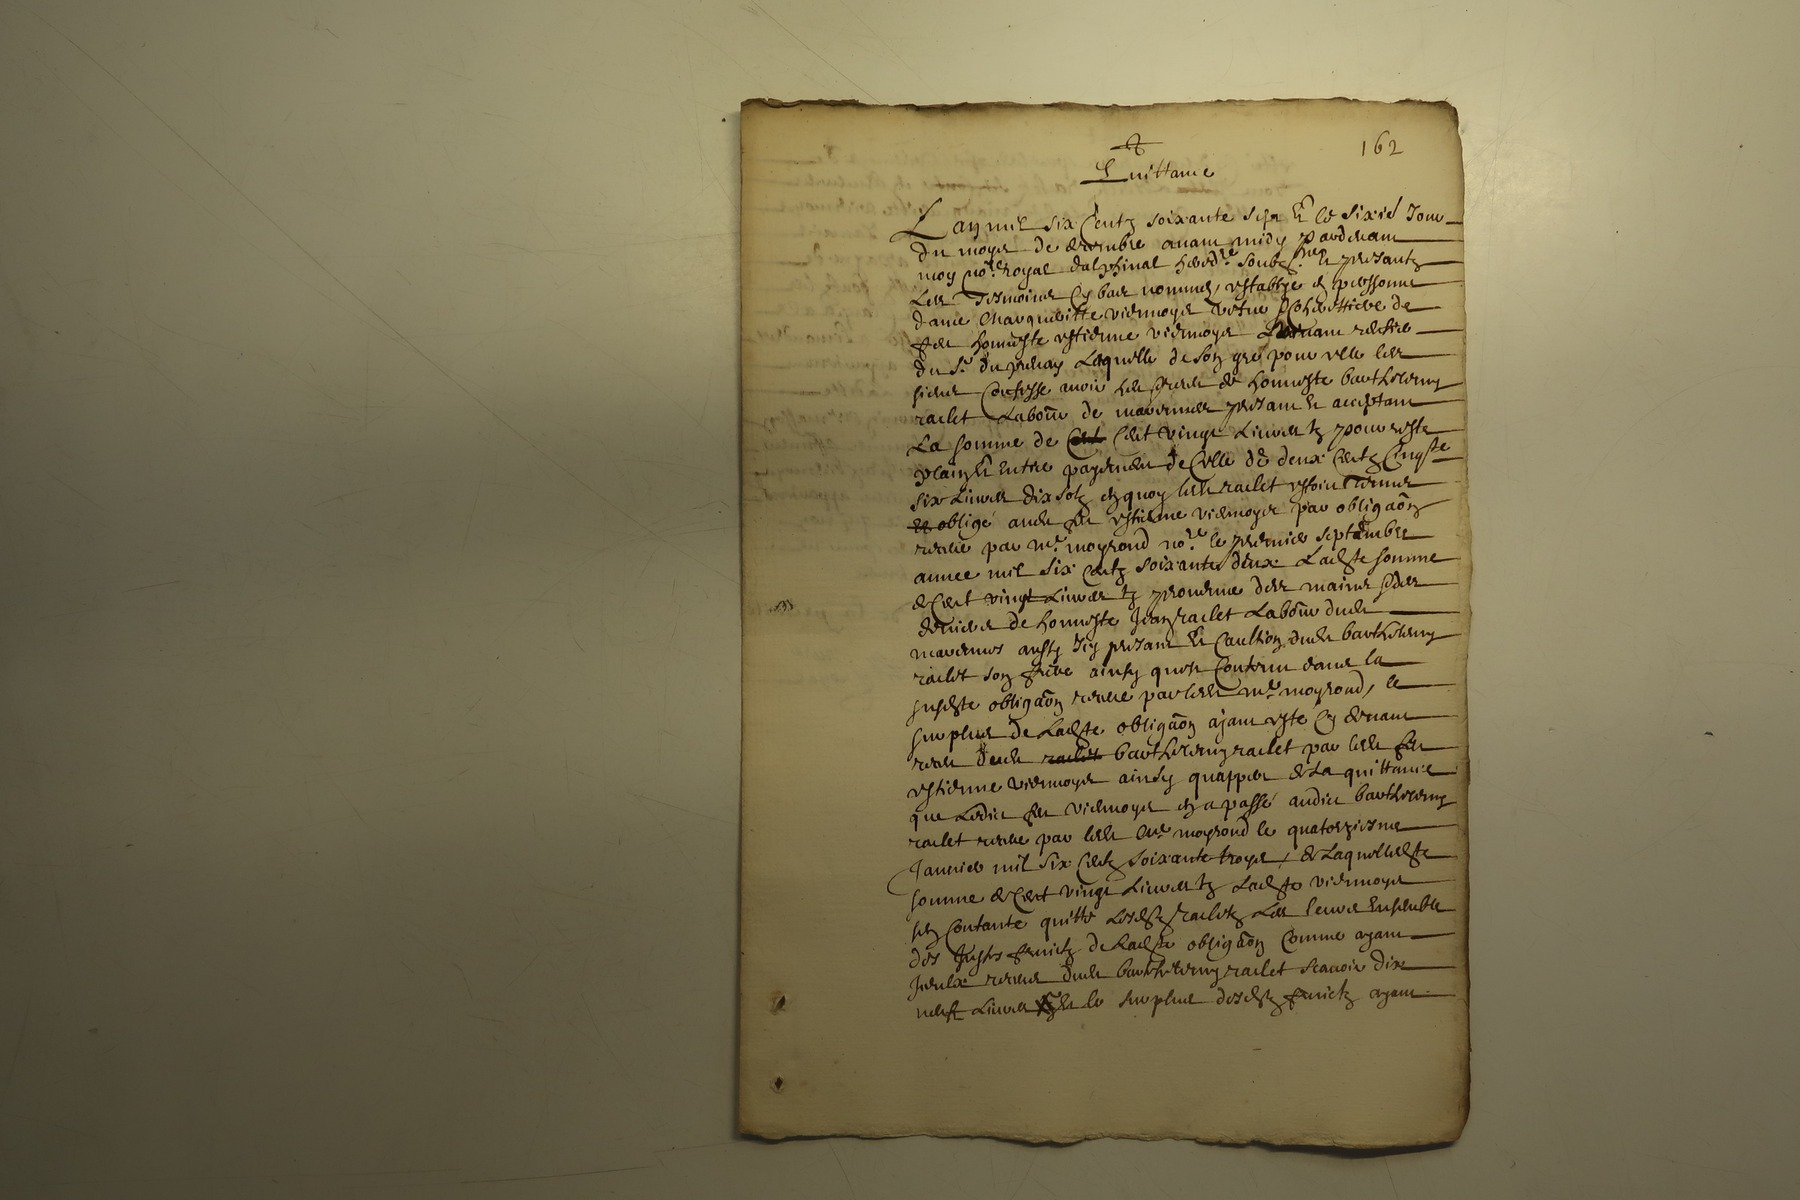 162
Quittance
Lan mil six Centz soixante sept Et le sixie Jour
du moys de decembre avant midy pardevant
moy no.re royal dalphinal hered.re soubz.né et presantz
Les Tesmoins Cy bas nommes, establye en personne
dame Margueritte viermoys vefve heritiere de
feu honneste estienne viermoys rectre
du Sr. du Laquelle de son gre pour elle les
siens Confesse avoir heu receu de honneste barthelemy
raclet Labour de presant et acceptant
La somme de Cent vingt Livres tz pour reste
plain Et Entier payement de Celle de deux Centz Cinqte
six Livres dix solz en quoy ledt raclet estoit tenu
et obligé audt feu estienne viermoys par obligaon
receue par me. moyroud no.re le premier septembre
annee mil six Centz soixante deux Ladte somme
de Cent vingt Livres tz provenue des mains
deniers de honneste Jean raclet Labour dudt
aussy Icy presant Et Caultion dudt barthelemy
raclet son frere ainsy quest Contenu dans la
susdte obligaon receue par ledt me. moyroud, le
surplus de Ladte obligaon ayant esté Cy devant
receu dudt raclet barthelemy raclet par ledt feu
estienne viermoys ainsy quappert de La quittance
que Ledict feu viermoys en a passé audict barthelemy
raclet receue par ledt me. moyroud le quatorziesme
Janvier mil six Centz soixante troys, de Laquelle dte
somme de Cent vingt Livres tz Ladte viermoys
sen Contante quitte Lesdtz racletz Les leurs Ensemble
des fruictz de Ladte obligaon Comme ayant
Iceulx receus dudt barthelemy raclet scavoir dix
neuf Livres et le surplus desdtz fruictz ayant